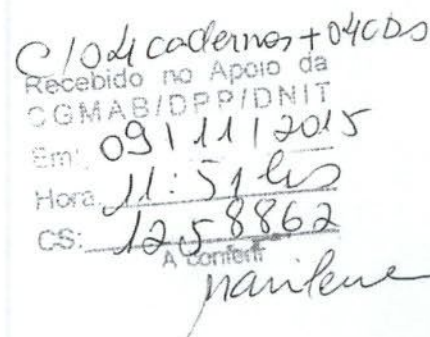 C/04 cadernos + 04 CDs
Recebido no Apoio da
CGMAB/DPP/DNIT
Em: 09/11/2015
Hora: 11:51 hs
CS: 1258862
A Conferir
Marilene